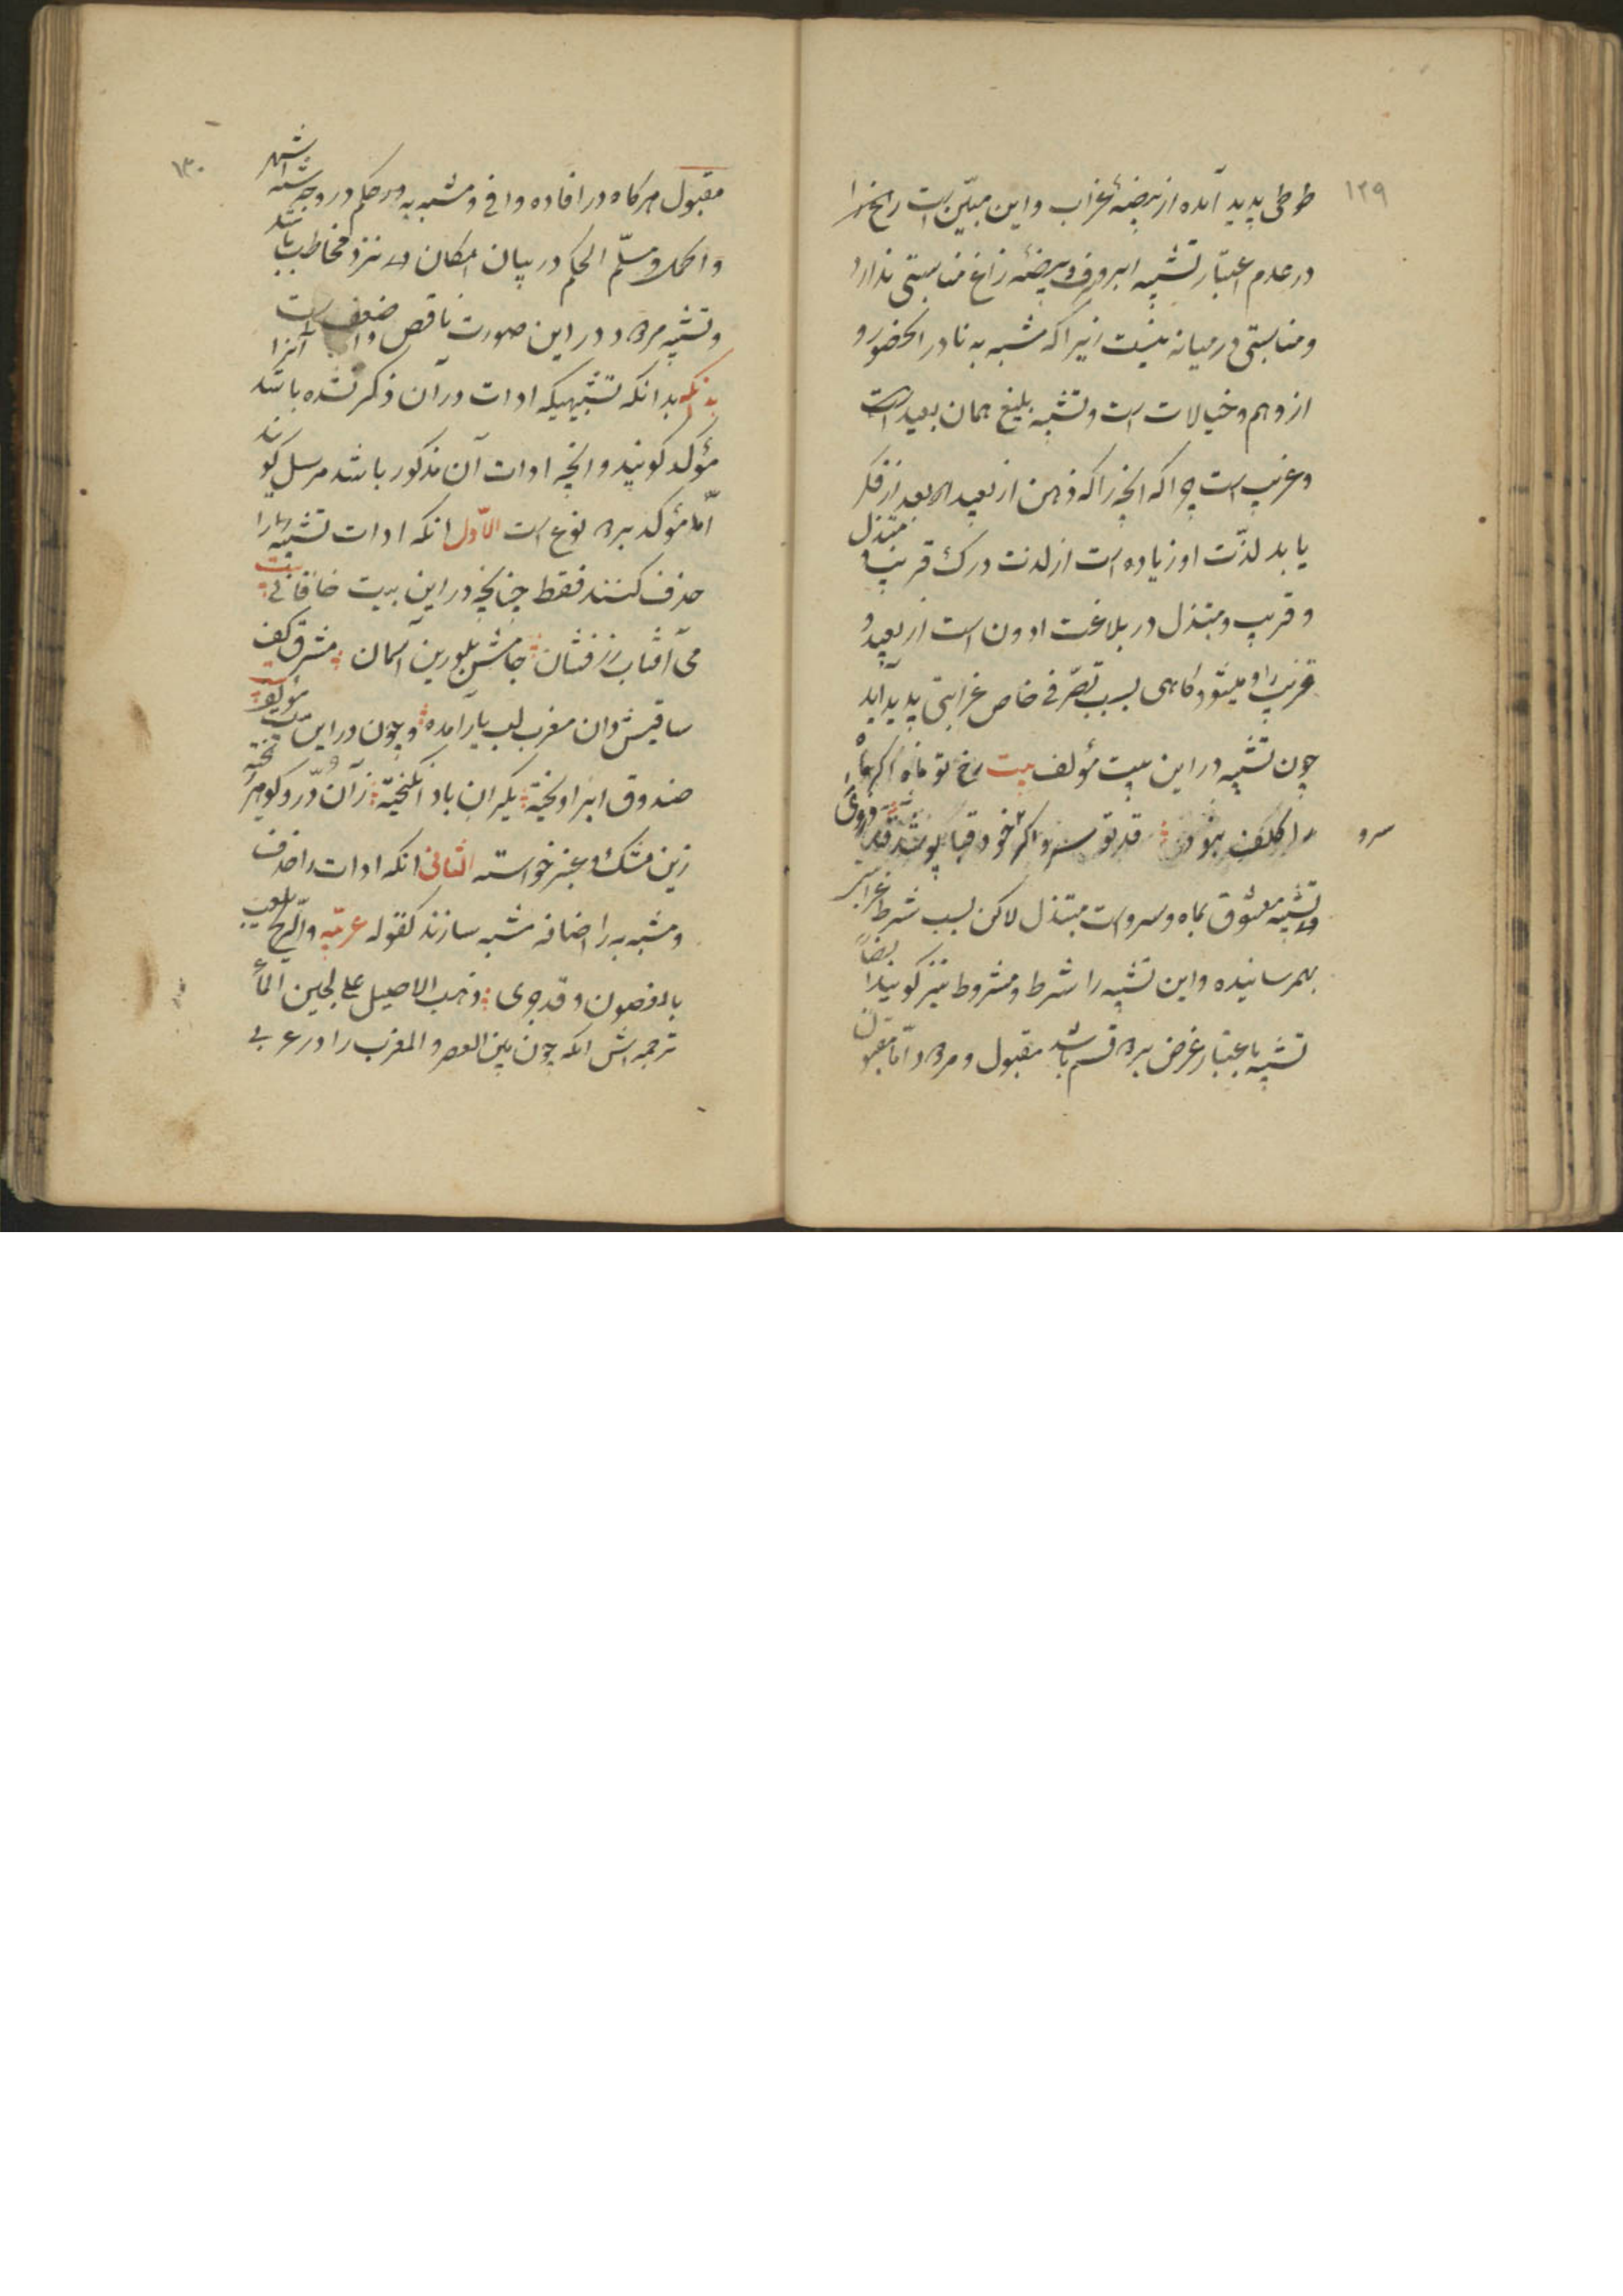 ۱۲۹
طوطی پدید آمده از بیضهٔ غراب واین مبیّن است
در عدم اعتبار تشبیه ابر وبرف وبیضه زاغ مناسبتی ندارد
ومناسبتی در میانه نیست زیرا که مشبه به نادر الحضور و
از وهم وخیالات است وتشبیه بلیغ همان بعید است
وغریب است چرا که آنچه را که ذهن از بعید بعد از فکر
یابد لذّت او زیاده است از لذت درک قریب مبتذل
و قریب ومبتذل در بلاغت ادون است از بعید و
غریب و میشود کاهی بسبب تصرّفی خاص غرابتی پدید آید
چون تشبیه در این بیت مؤلف بیت رخ تو ماه اکر ماه
را کلف نبود قد تو سرو اکر خود قبا پوشد
سرو
وتشبیه معشوق بماه وسرو است مبتذل لاکن بسبب شرط
بهم رسانیده واین تشبیه را شرط ومشروط نیز کویند ایضاً
تشبیه باعتبار غرض بر دو قسم باشد مقبول ومردود امّا مقبول
۱۳۰
مقبول هر کاه در افاده وافی ومشبه به در حکم در وجه شبه اشهر
واکمل ومسلّم الحکم در بیان امکان نزد مخاطب باشد
وتشبیه مردود در این صورت ناقص وضعف است آنرا
بدانکه تشبیهیکه ادات در آن ذکر نشده باشد
مؤکد کویند وانچه ادات آن مذکور باشد مرسل کویند
امّا مؤکد بر دو نوع است الاوّل انکه ادات تشبیه را
حذف کنند فقط چنانچه در این بیت خاقانی بیت
می آفتاب زرفشان جامش بلورین آسمان مشرق کف
ساقیش دان مغرب لب یار آمده وچون در این بیت مؤلف
صندوق ابر اویخته یکران باد انکیخته زآن درّ وکوهر ریخته
زین مشک وعنبر خواسته الثانی انکه ادات را حذف
ومشبه به را اضافه مشبه سازند کقوله عربیّه والریح تلعب
بالغصون وقد جری ذهب الاصیل علی لجین المآء
ترجمه اش انکه چون بین العصر والمغرب را در عربی